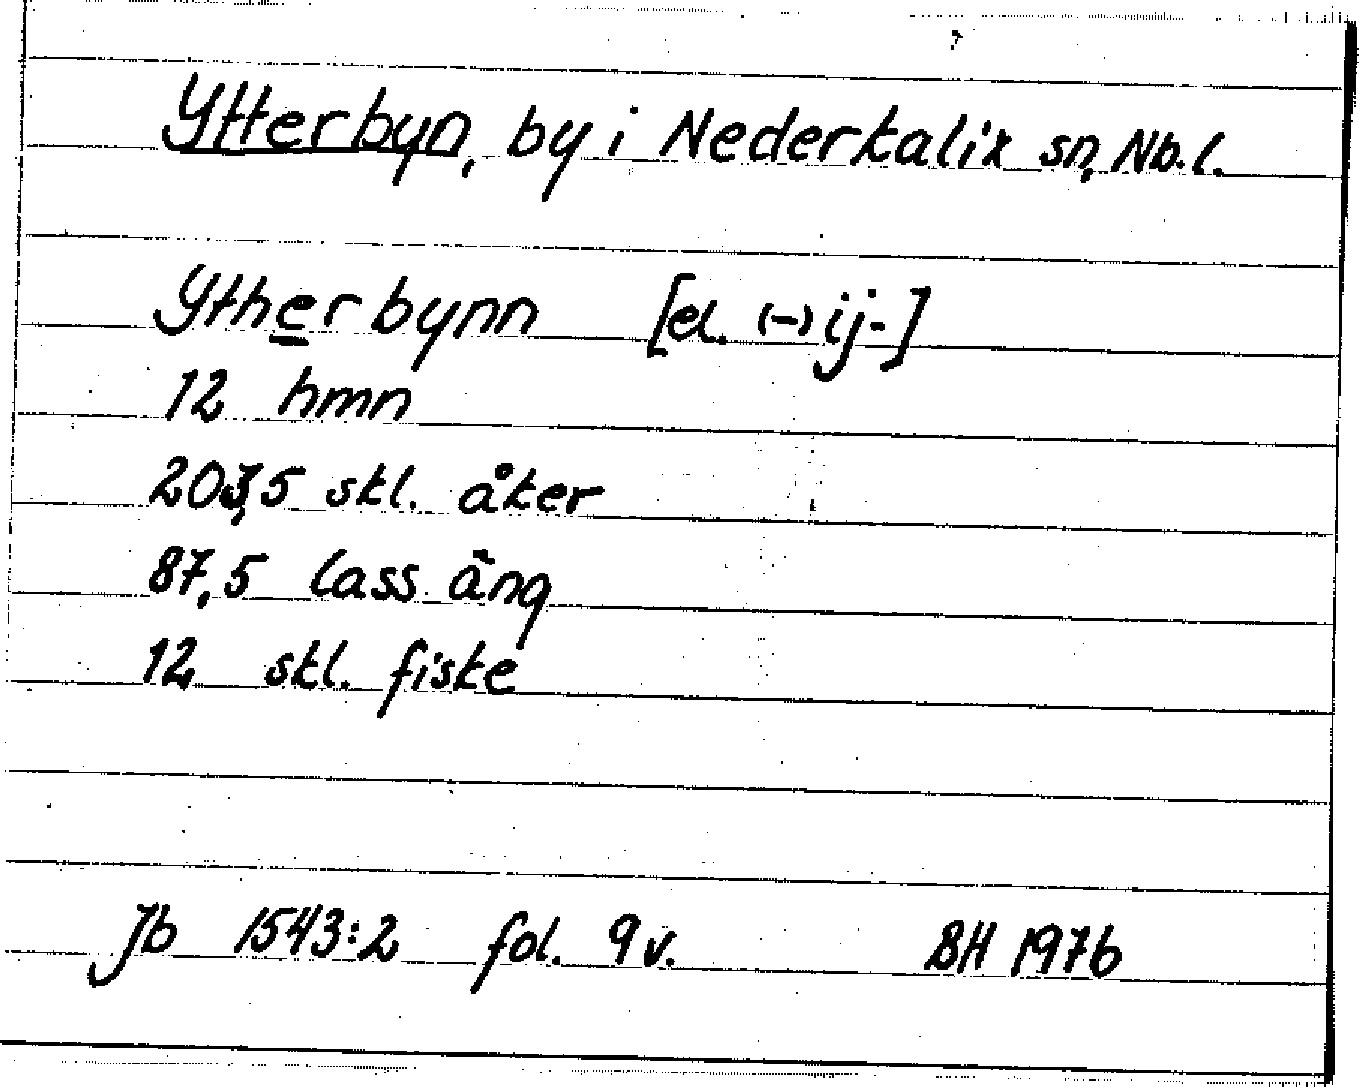 Ytterbyn, by i Nederkalix sn, Nb.l.
Ytherbynn [el. (-)ij-]
12 hmn
203,5 skl. åker
87,5 lass äng
12 skl. fiske
Jb 1543:2 fol. 9 v. BH 1976